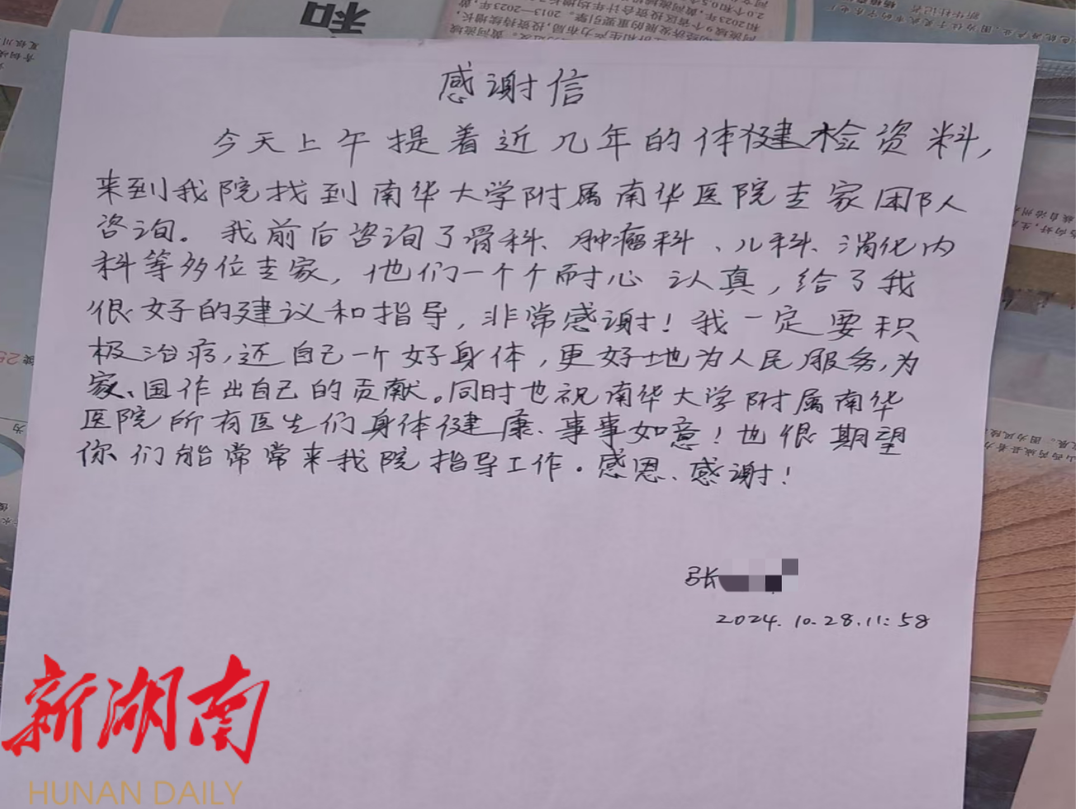 感谢信
今天上午提着近几年的体健检资料,
来到我院找到南华大学附属南华医院专家团队
咨询。我前后咨询了骨科、肿瘤科、儿科、消化内
科等多位专家,他们一个个耐心认真,给了我
很好的建议和指导,非常感谢!我一定要积
极治疗,还自己一个好身体,更好地为人民服务,为
家、国作出自己的贡献。同时也祝南华大学附属南华
医院所有医生们身体健康、事事如意!也很期望
你们能常常来我院指导工作。感恩、感谢!
张
2024.10.28.11:58
新湖南
HUNAN DAILY